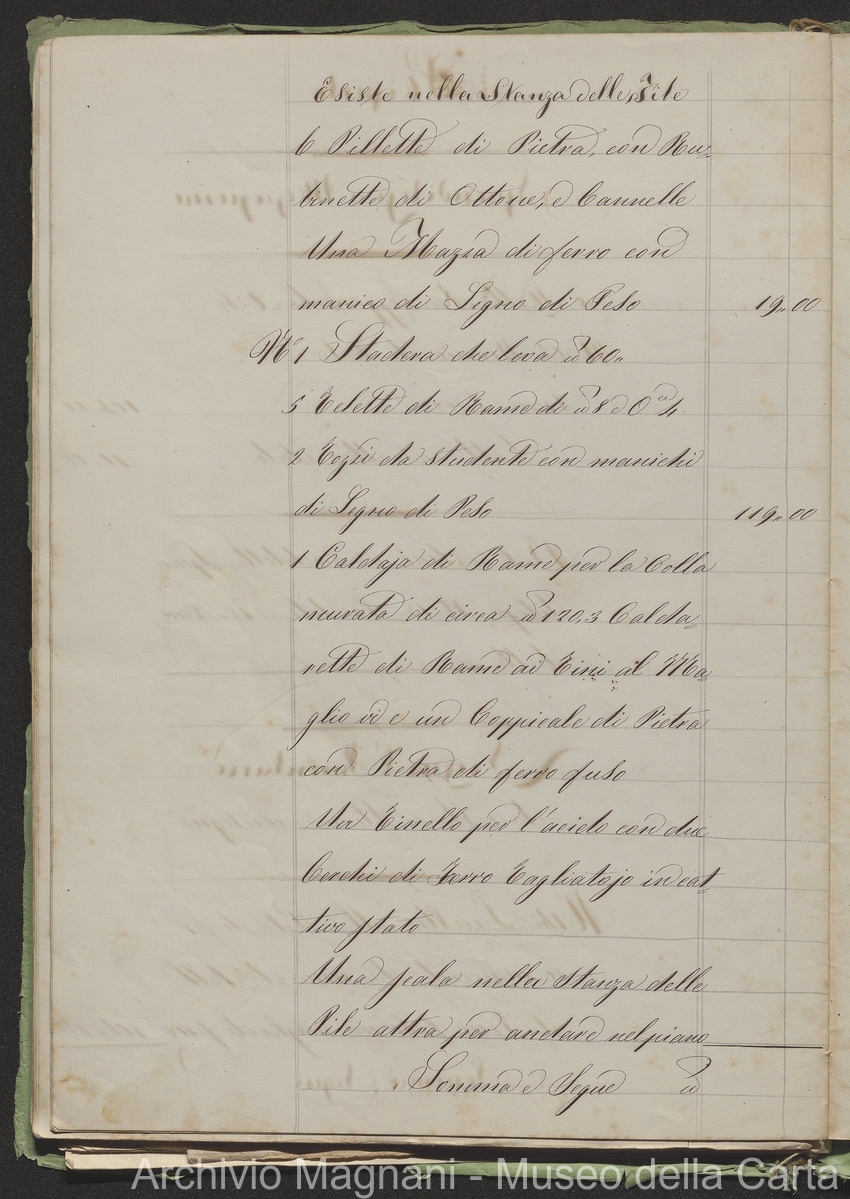 Esiste nella Stanza delle Pile
6 Pillette di Pietra, con Ru=
binette di Ottone, e Cannelle
Una Mazza di ferro con
manico di Legno di Peso 19,, 00
N° 1 Stadera che leva 60,,
5 Telette di Rame di 8 e
2 da studente con manichi
di Legno di Peso 119,, 00
1 Caldaja di Rame per la Colla
murata di circa 120, 3 Calda=
rette di Rame ai Tini al Ma=
glio vi e un Coppicale di Pietra
con Pietra di ferro fuso
Un Tinello per l'acido con due
Cerchi di Ferro Tagliatojo in cat=
tivo stato
Una scala nella Stanza delle
Pile altra per andare nel piano
Somma e Segue
Archivio Magnani - Museo della Carta